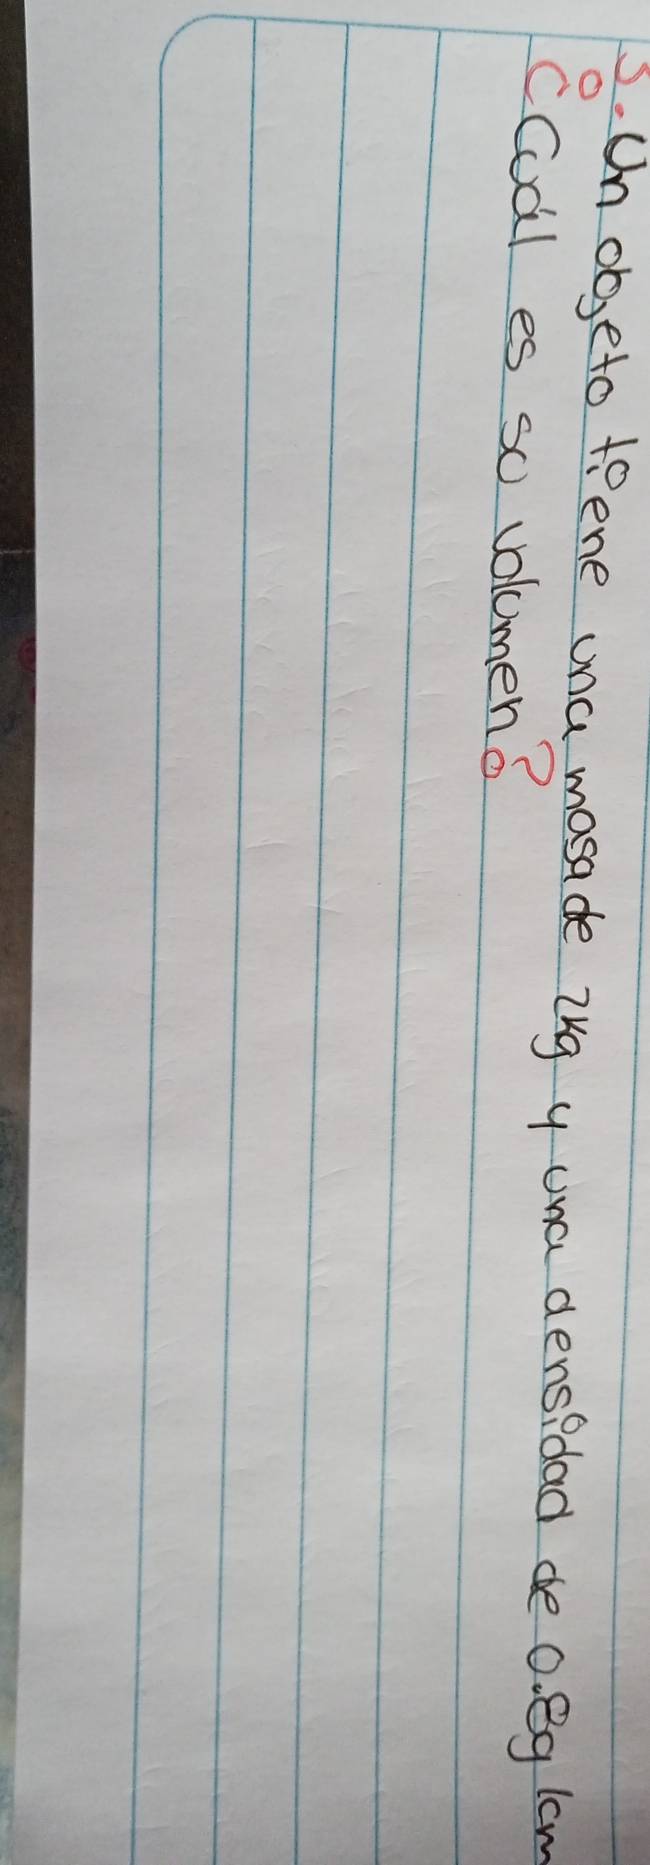 5. Un objeto tiene una masa de 2kg y una densidad de 0.8g/cm
¿Cuál es su volumen?